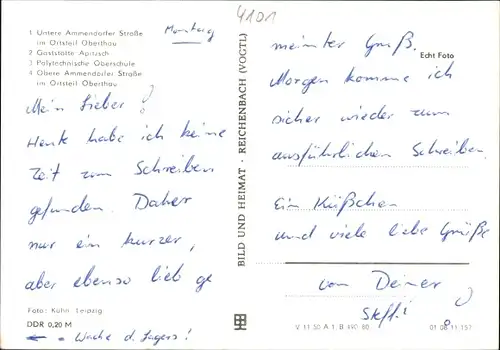 1 Untere Ammendorfer Straße
im Ortsteil Oberthau
2 Gaststätte Apitzsch
3 Polytechnische Oberschule
4 Obere Ammendorfer Straße
im Ortsteil Oberthau
Montag
Mein Lieber!
Heute habe ich keine
Zeit zum Schreiben
gefunden. Daher
nur ein kurzer,
aber ebenso lieb ge
Foto: Kühn Leipzig
DDR 0,20 M
← Wache d. Lagers!
4101
BILD UND HEIMAT · REICHENBACH (VOGTL)
meinter Gruß.
Echt Foto
Morgen komme ich
sicher wieder zum
ausführlichen Schreiben.
Ein Küßchen
und viele liebe Grüße
von Deiner
Steffi
V 11 50 A 1 B 690/80
01 08 11 157